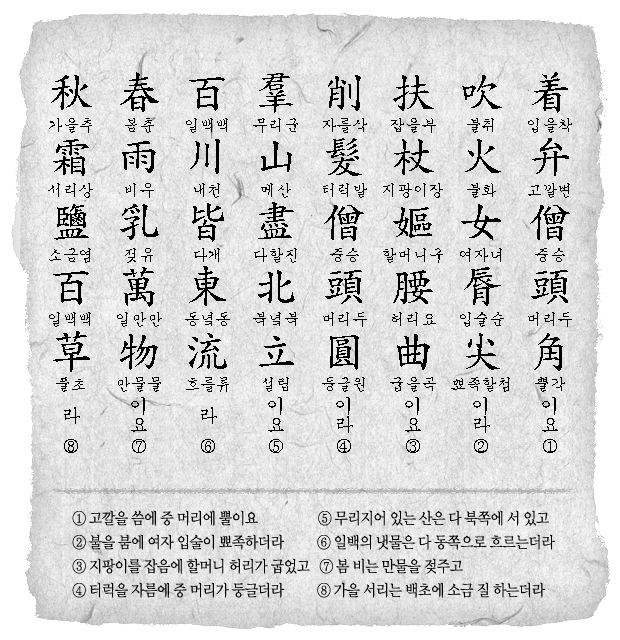 着 입을착 弁 고깔변 僧 중승 頭 머리두 角 뿔각 이요 ①
吹 불취 火 불화 女 여자녀 脣 입술순 尖 뾰족할첨 이라 ②
扶 잡을부 杖 지팡이장 嫗 할머니구 腰 허리요 曲 굽을곡 이요 ③
削 자를삭 髮 터럭발 僧 중승 頭 머리두 圓 둥글원 이라 ④
羣 무리군 山 메산 盡 다할진 北 북녘북 立 설립 이요 ⑤
百 일백백 川 내천 皆 다개 東 동녘동 流 흐를류 라 ⑥
春 봄춘 雨 비우 乳 젖유 萬 일만만 物 만물물 이요 ⑦
秋 가을추 霜 서리상 鹽 소금염 百 일백백 草 풀초 라 ⑧
① 고깔을 씀에 중 머리에 뿔이요
② 불을 붐에 여자 입술이 뾰족하더라
③ 지팡이를 잡음에 할머니 허리가 굽었고
④ 터럭을 자름에 중 머리가 둥글더라
⑤ 무리지어 있는 산은 다 북쪽에 서 있고
⑥ 일백의 냇물은 다 동쪽으로 흐르는더라
⑦ 봄 비는 만물을 젖주고
⑧ 가을 서리는 백초에 소금 질 하는더라